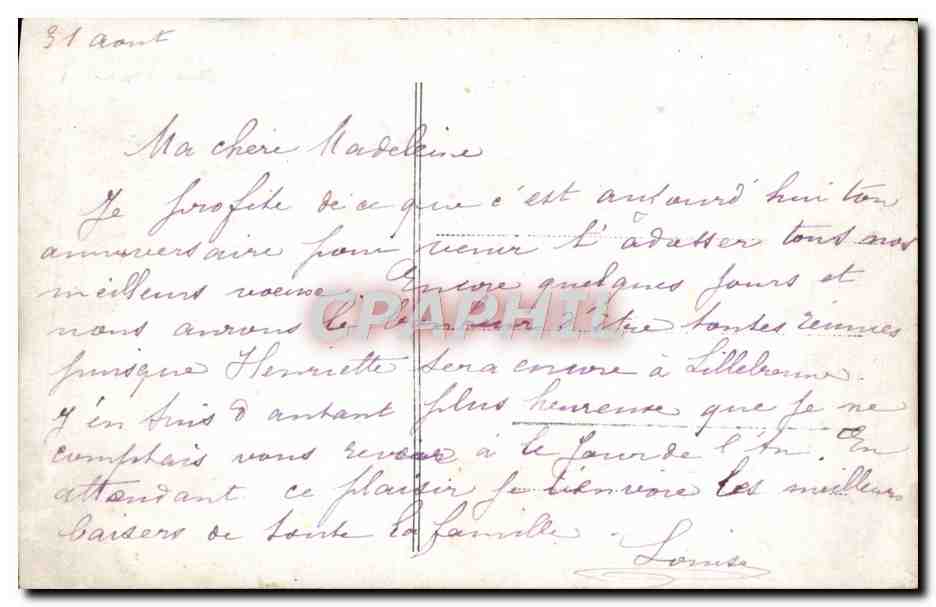 31 Aout
Ma chère Madeleine
Je profite de ce que c'est aujourd'hui ton
anniversaire pour venir t'adresser tous nos
meilleurs voeux. Encore quelques jours et
nous aurons le bonheur d'être toutes réunies
puisque Henriette sera encore à Lillebonne.
J'en suis d'autant plus heureuse que je ne
comptais vous revoir à le Jour de l'An. En
attendant ce plaisir je t'envoie les meilleurs
baisers de toute la famille.
Louise
CPAPHIL